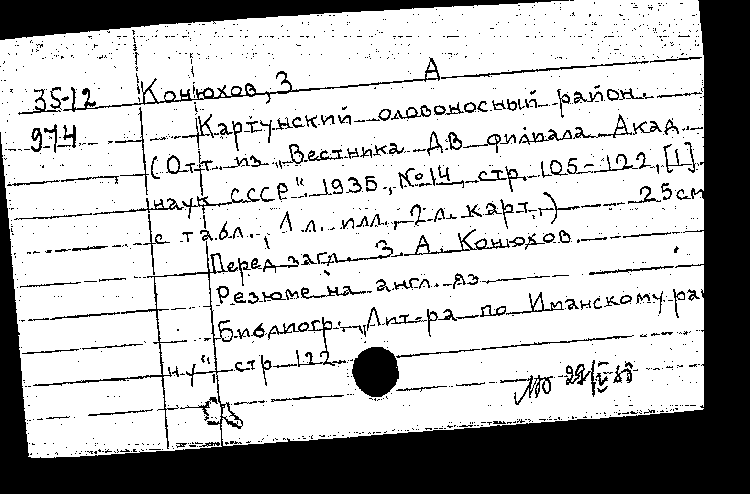 35-12 Конюхов, З А
974 Картунский оловоносный район.
(Отт. из „Вестника ДВ филиала Акад.
наук СССР". 1935, №14, стр. 105-122, [1]
с табл., 1 л. илл., 2 л. карт.) 25см
Перед загл. З. А. Конюхов.
Резюме на англ. яз.
Библиогр.: „Лит-ра по Иманскому рай
ну", стр 122